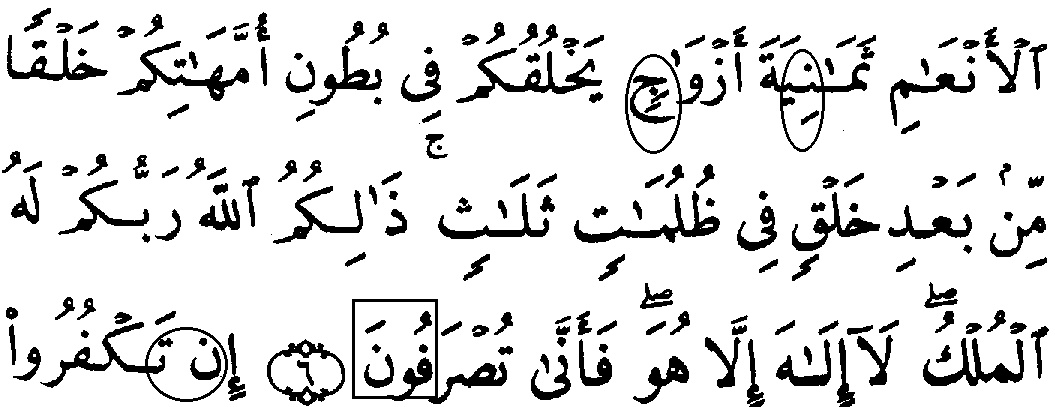 ٱلۡأَنۡعَٰمِ ثَمَٰنِيَةَ أَزۡوَٰجٖۚ يَخۡلُقُكُمۡ فِي بُطُونِ أُمَّهَٰتِكُمۡ خَلۡقٗا
مِّنۢ بَعۡدِ خَلۡقٖ فِي ظُلُمَٰتٖ ثَلَٰثٖۚ ذَٰلِكُمُ ٱللَّهُ رَبُّكُمۡ لَهُ
ٱلۡمُلۡكُۖ لَآ إِلَٰهَ إِلَّا هُوَۖ فَأَنَّىٰ تُصۡرَفُونَ ٦ إِن تَكۡفُرُواْ